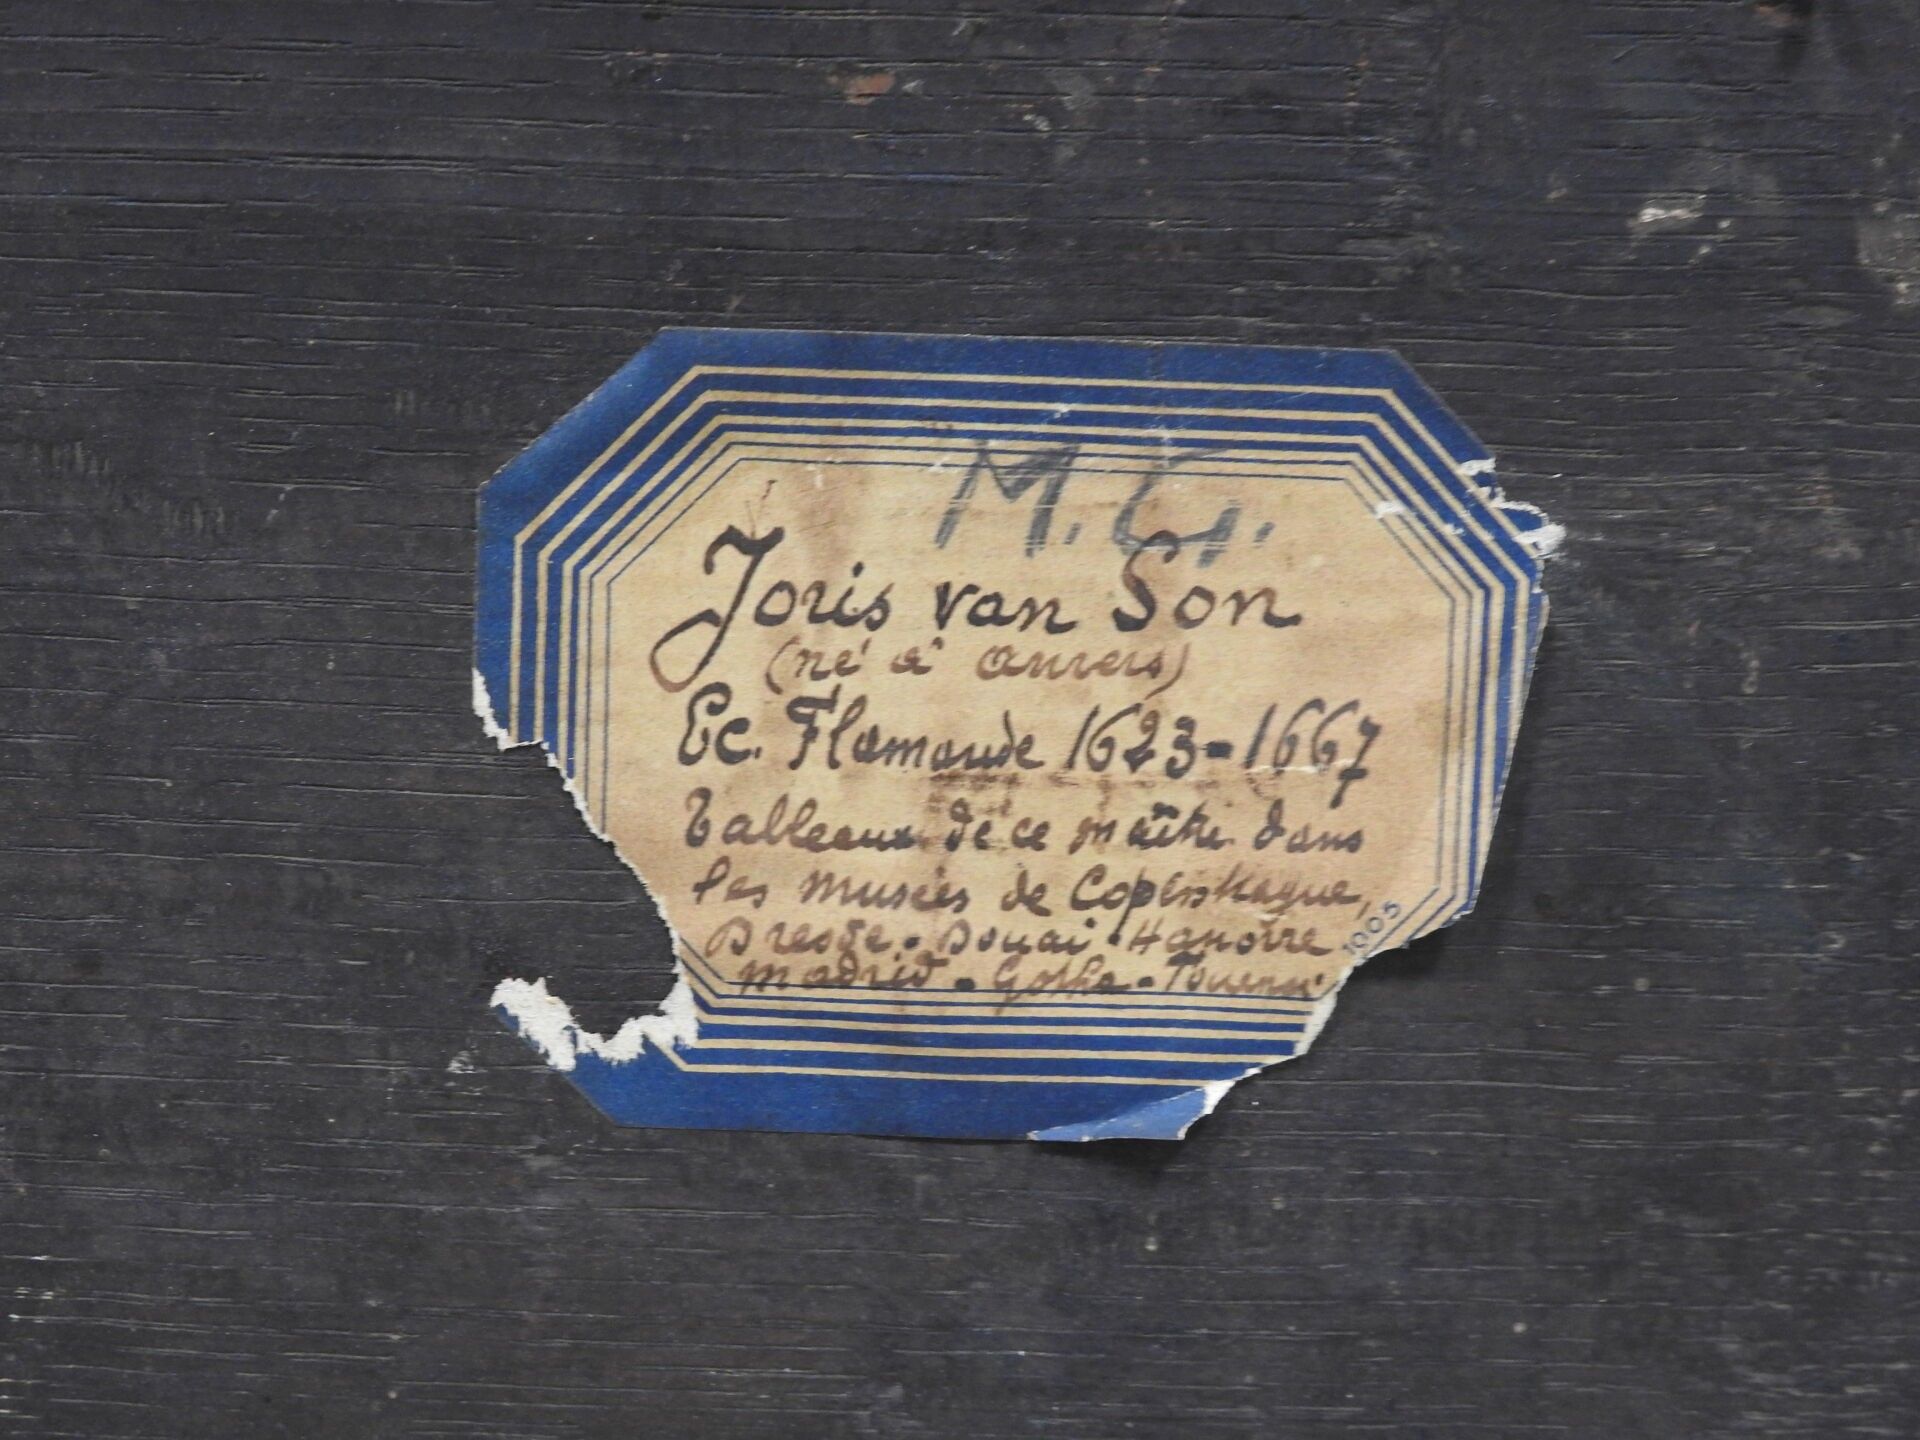 M. G.
Joris van Son
(né à Anvers)
Ec. Flamande 1623-1667
Tableaux de ce maître dans
les musées de Copenhague,
Dresde - Douai - Hanovre
Madrid - Gotha - Tournai
1005